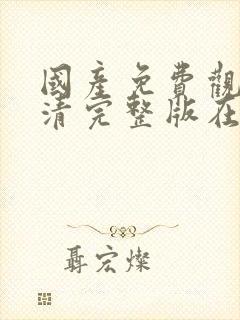 國產免費觀
清完整版在
聶宏燦